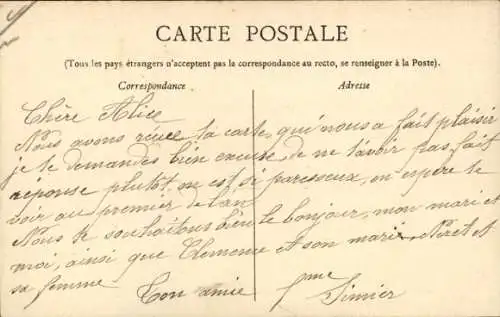 CARTE POSTALE
(Tous les pays étrangers n'acceptent pas la correspondance au recto, se renseigner à la Poste).
Correspondance Adresse
Chère Alice
Nous avons reçue ta carte qui nous a fait plaisir
je te demandes bien excuse de ne t'avoir pas fait
réponse plutot, on est si paresseux, on espère te
voir au premier de l'an
Nous te souhaitons bien le bonjour, mon mari et
moi, ainsi que Clemence et son mari et
sa femme Ton amie fme
Simier